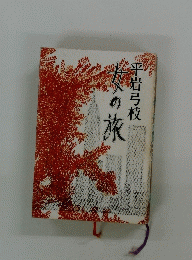 平岩弓枝
女の旅